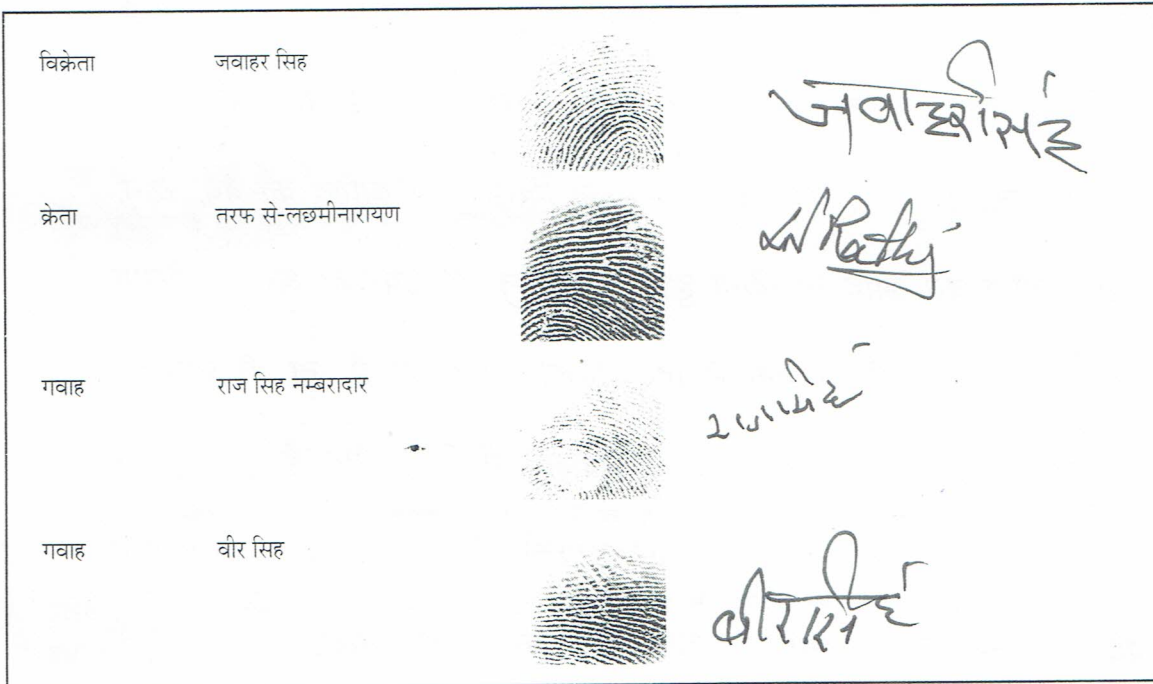 विक्रेता जवाहर सिह जवाहरसिंह
क्रेता तरफ से-लछमीनारायण LN Rathi
गवाह राज सिह नम्बरादार
गवाह वीर सिह बीरसिंह